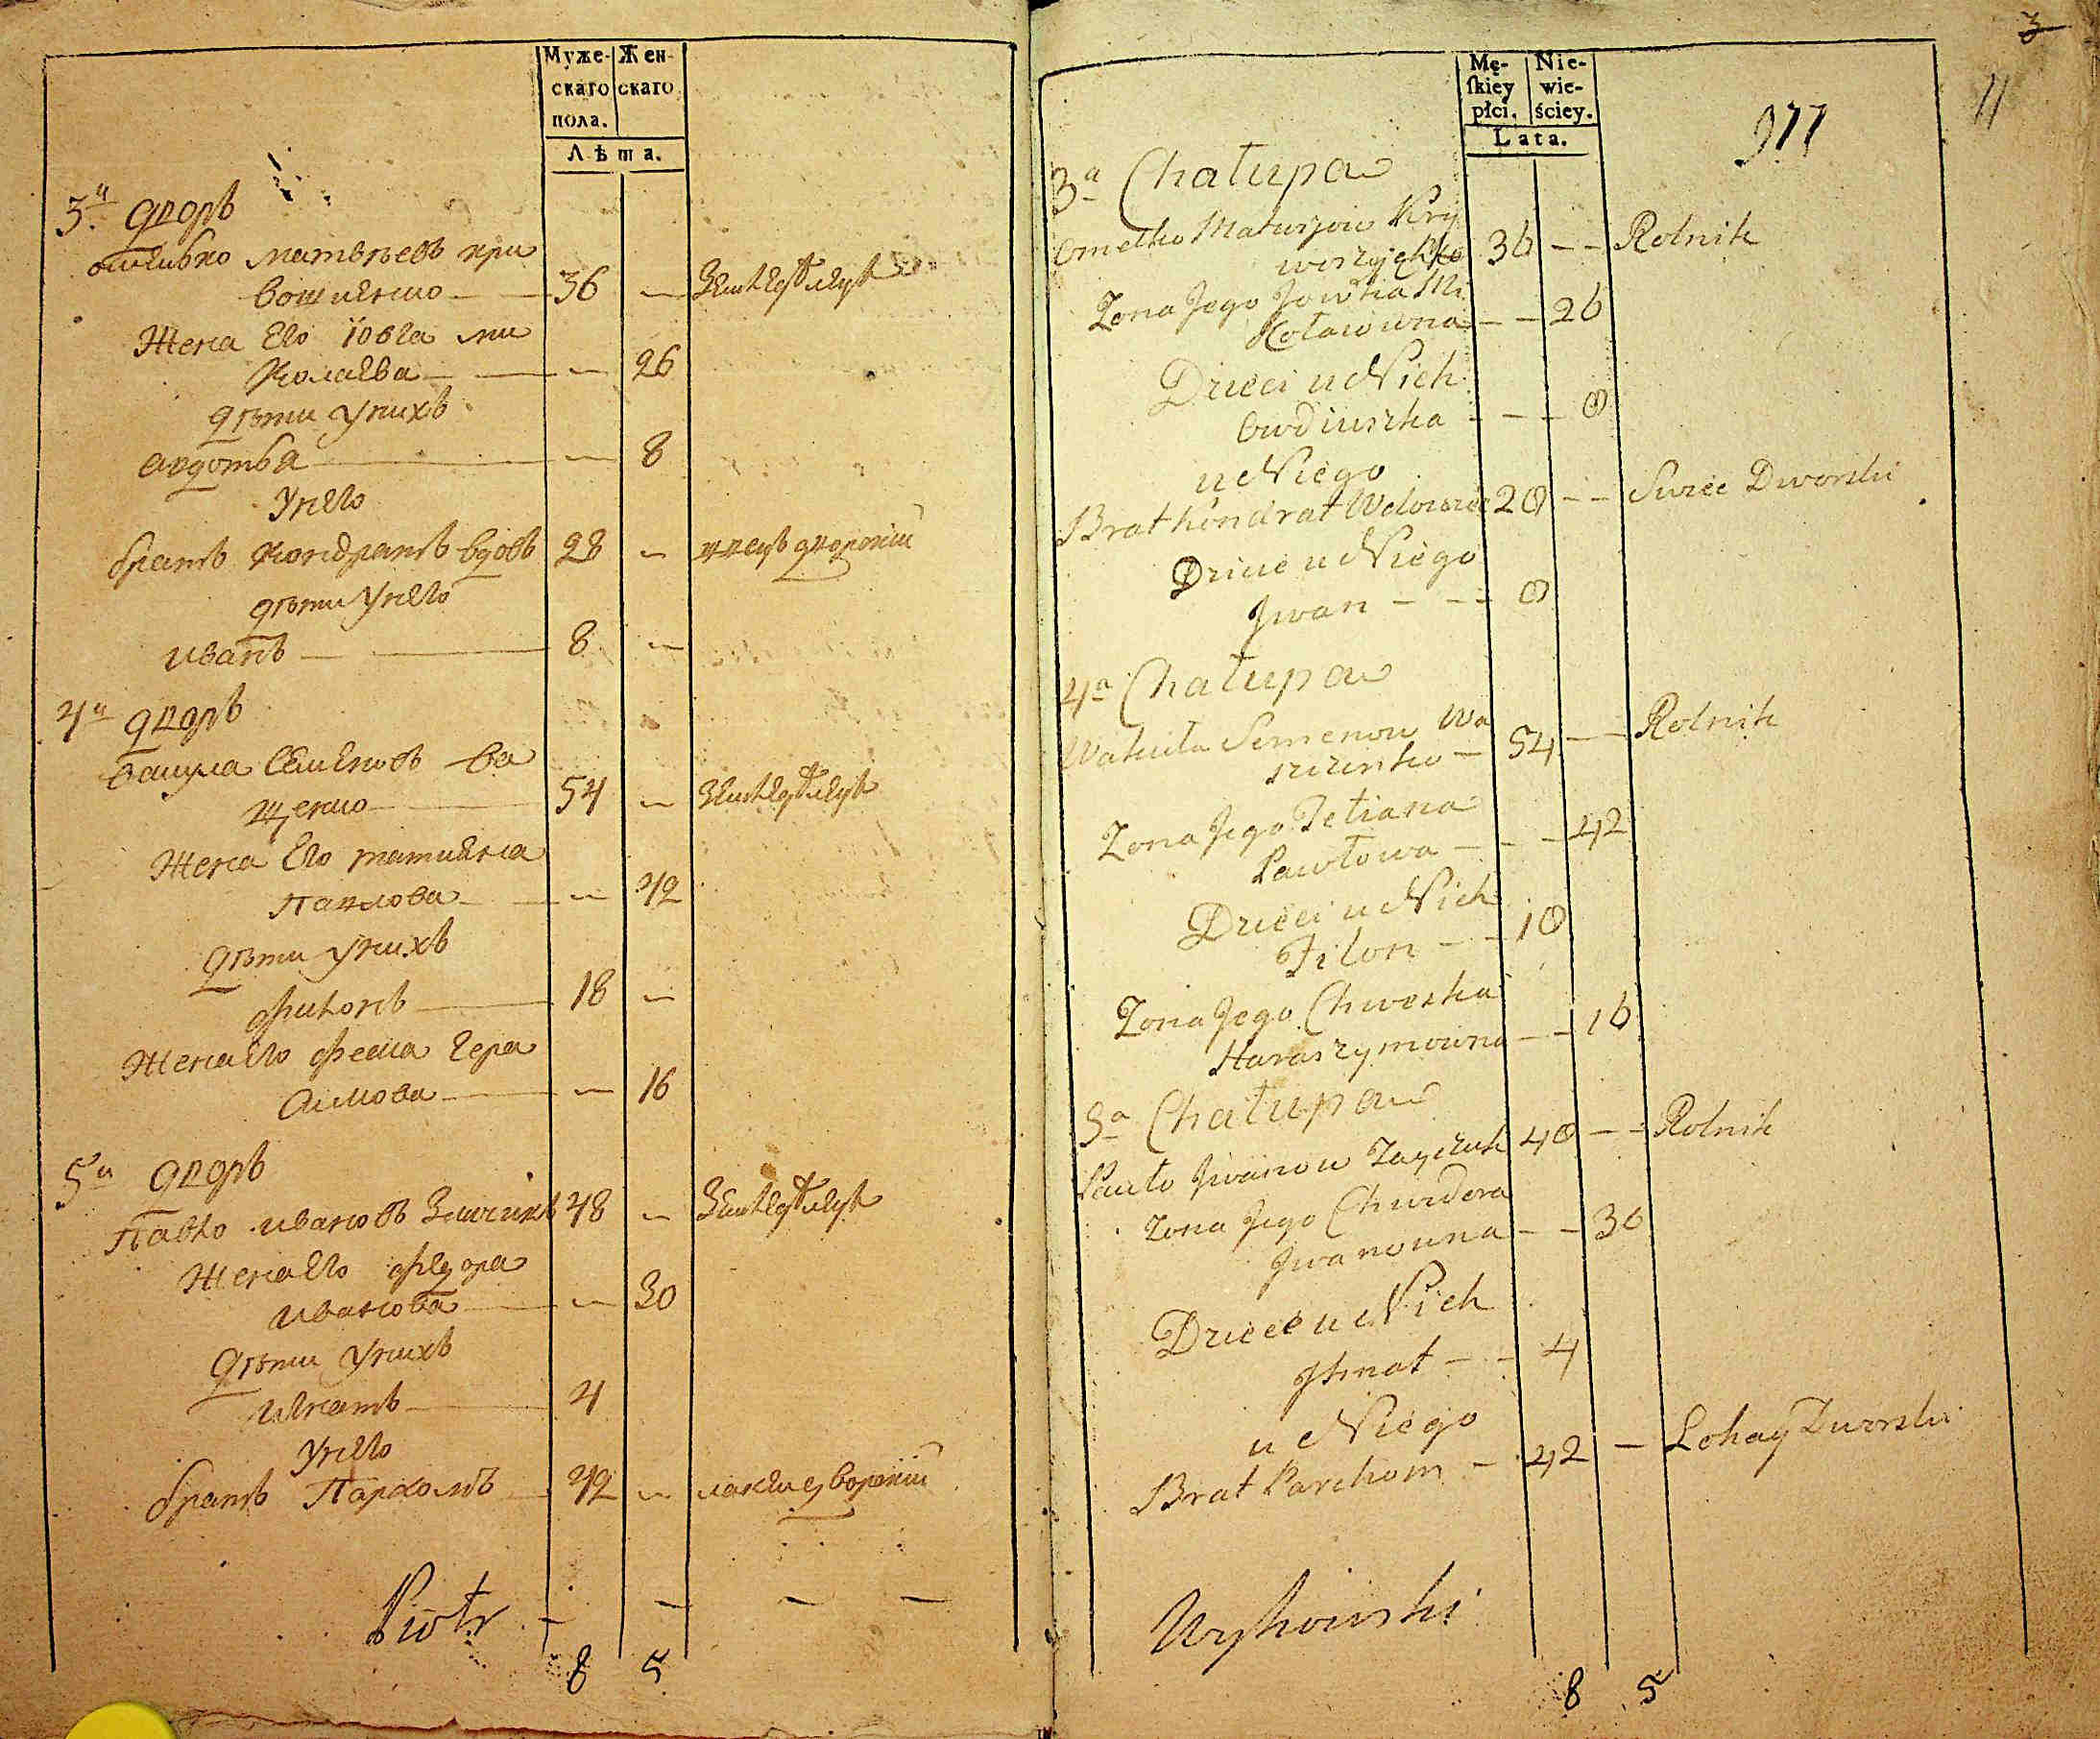 Муже-
скаго
пола.
Жен-
скаго
Лѣта.
3й дворъ
омелько матвѣевъ кри
вошиенко 36 — Земледѣлецъ
Жена Его Iовга ми
колаева — 26
дѣти унихъ
авдотья — 8
унего
братъ кондратъ вдовъ 28 — швецъ дворскiй
дѣти унего
иванъ 8 —
4й дворъ
вакула Семеновъ ва
щенко 54 — Земледѣлецъ
Жена Его татиана
павлова — 42
дѣти унихъ
филонъ 18 —
Жена его феска гера
симова — 16
5й дворъ
павло ивановъ 48 — Земледѣлецъ
Жена его федора
иванова — 30
дѣти унихъ
игнатъ 4
унего
братъ пархомъ 42 — лакей дворскiй
Piotr — — — —
8 5
3
11
977
Mę-
ſkiey
płci.
Nie-
wie-
ściey.
Lata.
3a Chałupa
Omelko Matwijow Kry
woszyjenko 36 — — Rolnik
Zona Jego Jowha Mi
kołaiowna — — 26
Dzieci u Nich
Owdiuszka — — — 8
u Niego
Brat Kondrat Wdowiec 28 — — Szwiec Dworski
Dziecie u Niego
Jwan — — — 8
4a Chałupa
Wakuła Semenow Wa
szczenko — 54 — — Rolnik
Zona Jego Tetiana
Pawłowa — — — 42
Dzieci u Nich
Filon — — 18
Zona Jego Chweska
Haraszymowna — — 16
5a Chałupa
Pawło Jwanow Zayczuk 48 — — Rolnik
Zona Jego Chwedora
Jwanowna — — 30
Dziecie u Nich
Jhnat — — 4
u Niego
Brat Parchom — 42 — Lokay Dworski
Wykowski
8 5